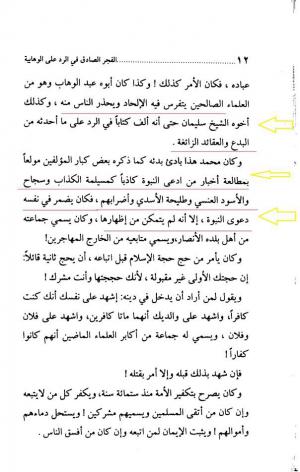 ١٢ الفجر الصادق في الرد على الوهابية
عباده ، فكان الأمر كذلك ! وكذا كان أبوه عبد الوهاب وهو من
العلماء الصالحين يتفرس فيه الإلحاد ويحذر الناس منه ، وكذلك
أخوه الشيخ سليمان حتى أنه ألف كتاباً في الرد على ما أحدثه من
البدع والعقائد الزائغة .
وكان محمد هذا بادئ بدئه كما ذكره بعض كبار المؤلفين مولعاً
بمطالعة أخبار من ادعى النبوة كاذباً كمسيلمة الكذاب وسجاح
والأسود العنسي وطليحة الأسدي وأضرابهم ، فكان يضمر في نفسه
دعوى النبوة ، إلا أنه لم يتمكن من إظهارها ، وكان يسمي جماعته
من أهل بلده الأنصار، ويسمي متابعيه من الخارج المهاجرين!
وكان يأمر من حج حجة الإسلام قبل اتباعه ، أن يحج ثانية قائلاً:
إن حجتك الأولى غير مقبولة ، لأنك حججتها وأنت مشرك !
ويقول لمن أراد أن يدخل في دينه: إشهد على نفسك أنك كنت
كافراً، واشهد على والديك أنهما ماتا كافرين، واشهد على فلان
وفلان ، ويسمي له جماعة من أكابر العلماء الماضين أنهم كانوا
كفاراً !
فإن شهد بذلك قبله وإلا أمر بقتله !
وكان يصرح بتكفير الأمة منذ ستمائة سنة، ويكفر كل من لايتبعه
وإن كان من أتقى المسلمين ويسميهم مشركين ! ويستحل دماءهم
وأموالهم ! ويثبت الإيمان لمن اتبعه وإن كان من أفسق الناس .